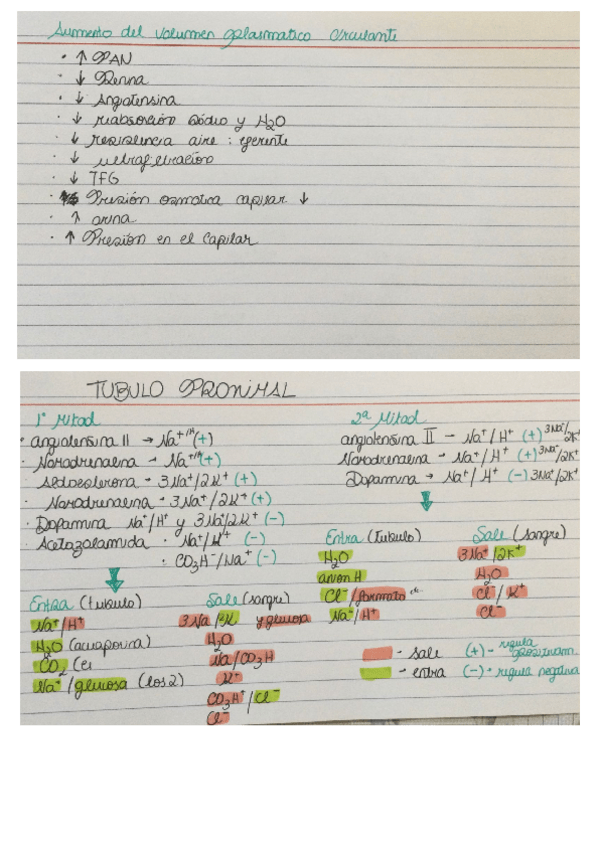 Aumento del volumen plasmatico circulante
· ↑ PAN
· ↓ Renina
· ↓ Angiotensina
· ↓ reabsorción sódio y H2O
· ↓ resistencia aire : eferente
· ↓ ultrafiltración
· ↓ TFG
· Presión osmotica capilar ↓
· ↑ orina
· ↑ Presión en el Capilar
TUBULO PROXIMAL
1ª Mitad
· angiotensina II → Na+/H+ (+)
· Noradrenalina → Na+/H+ (+)
· Aldosterona - 3Na+/2K+ (+)
· Noradrenalina - 3Na+/2K+ (+)
· Dopamina Na+/H+ y 3Na+/2K+ (-)
· Acetazolamida · Na+/H+ (-)
· CO3H-/Na+ (-)
Entra (tubulo)
Na+/H+
H2O (acuaporina)
CO2 (
Na+/glucosa (los 2)
Sale (sangre)
3Na/2K y glucosa
H2O
Na/CO3H
K+
CO3H+/Cl-
Cl-
2ª Mitad
angiotensina II - Na+/H+ (+) 3Na+/2K+
Noradrenalina - Na+/H+ (+) 3Na+/2K+
Dopamina → Na+/H+ (-) 3Na+/2K+
Entra (tubulo)
H2O
anion H
Cl-/formato
Na+/H+
Sale (sangre)
3Na+/2K+
H2O
Cl-/K+
Cl-
- sale
- entra
(+) - regula
(-) - regula negativa